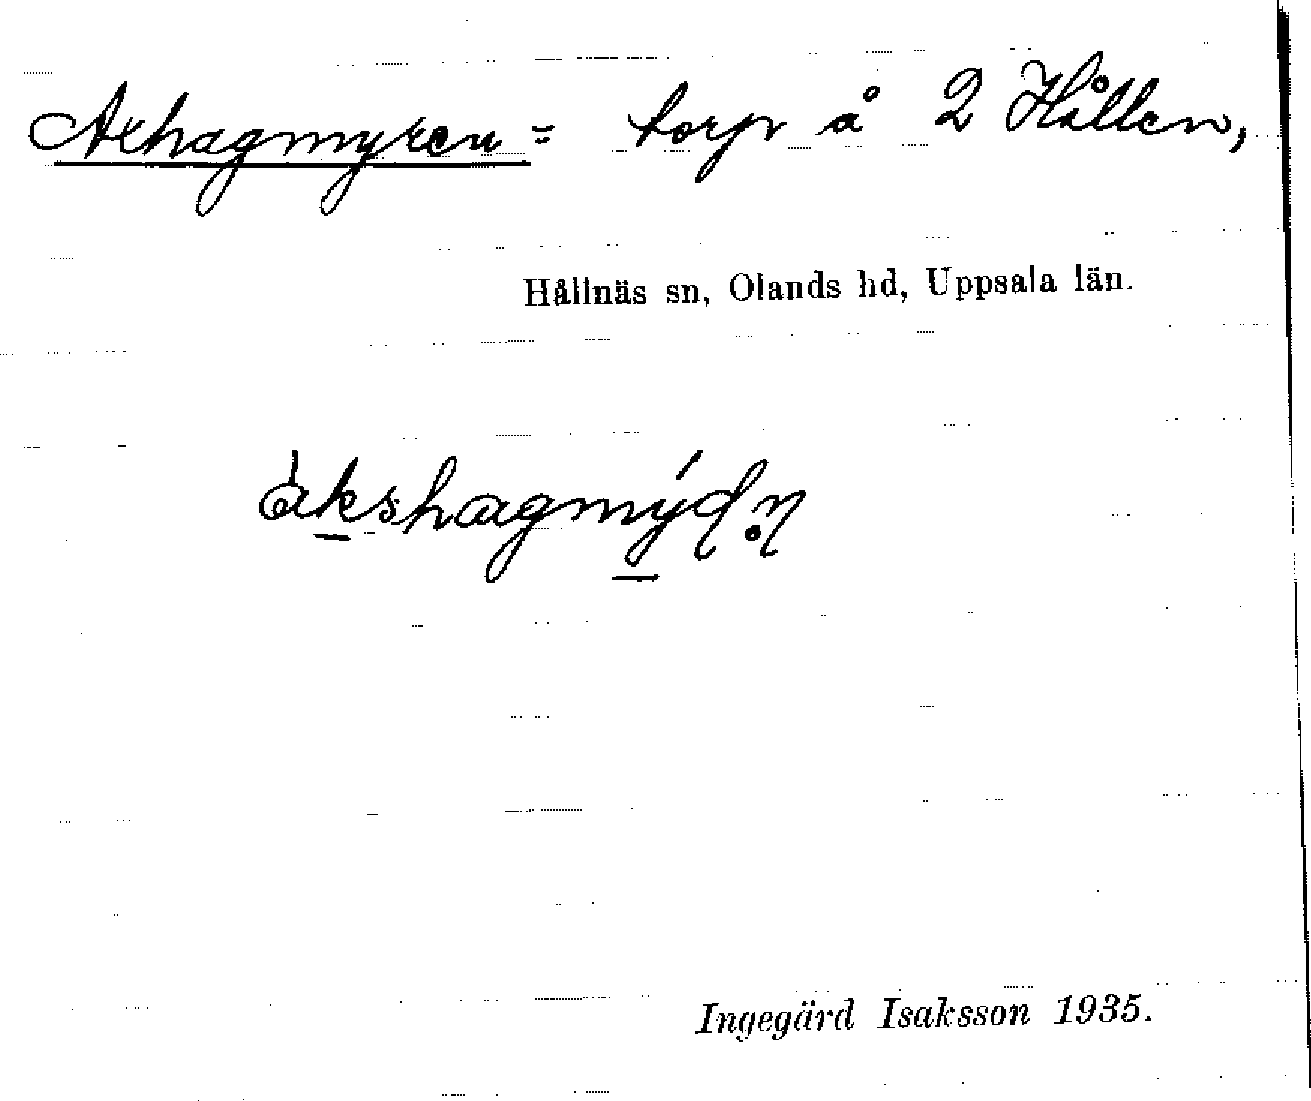 Axhagmyren = torp å 2 Hållen,
Hållnäs sn, Olands hd, Uppsala län.
àkshagmýɖṇ
Ingegärd Isaksson 1935.